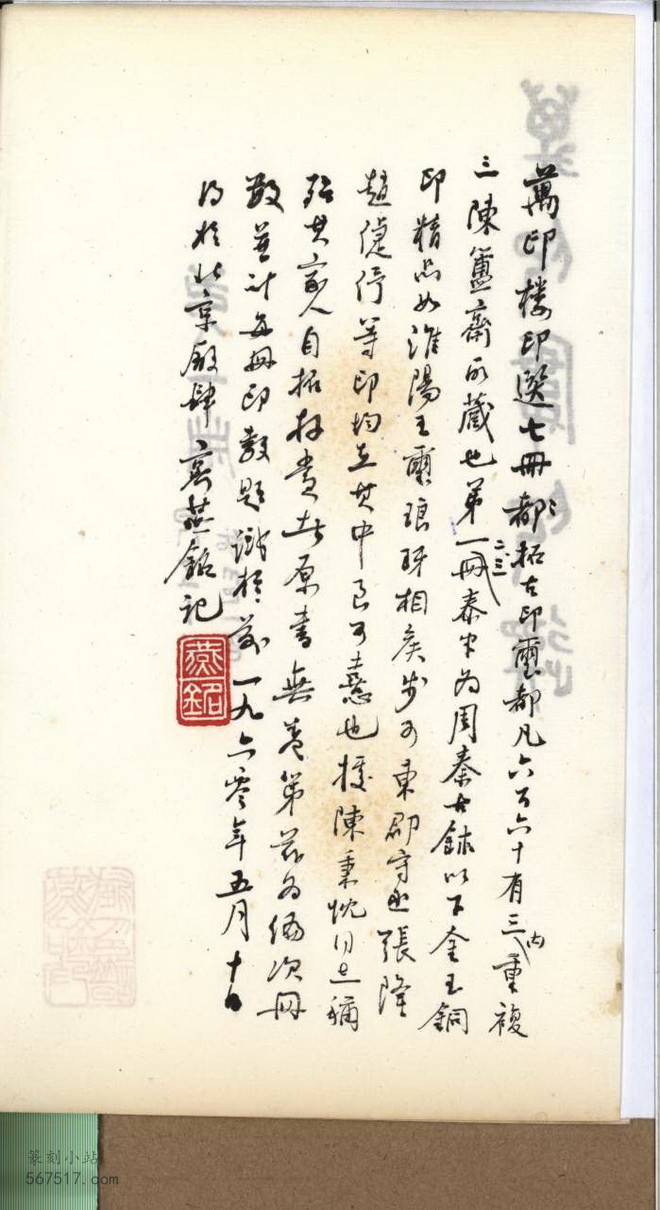 萬印樓印選七冊都拓古印璽都凡六百六十有三內重複
三陳簠齋所藏也第一冊二三冊泰半為周秦古鉢以下金玉銅
印精品如淮陽王璽琅邪相矦步可東郡守丞張隆
趙倢伃等印均在其中良可憙也據陳秉忱同志稱
殆其家人自拓存貴者原書無卷第茲為編次冊
數並計每冊印數題識於前一九六零年五月十日
得於北京廠肆齊燕銘記
燕銘
篆刻小站
567517.com